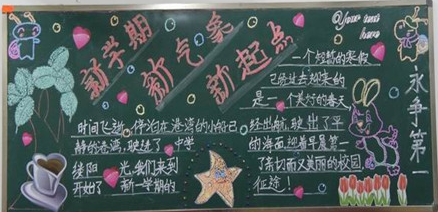 新学期
新气象
新起点
Your text
here
一个短暂的寒假
已经过去迎来的
是一个美好的春天
时间飞逝,停泊在港湾的小船已
静的港湾,驶进了
缕阳光,我们来到
开始了新一学期的
经出航,驶出了平
的海面迎着早晨第一
了亲切而又美丽的校园
征途!
永争第一